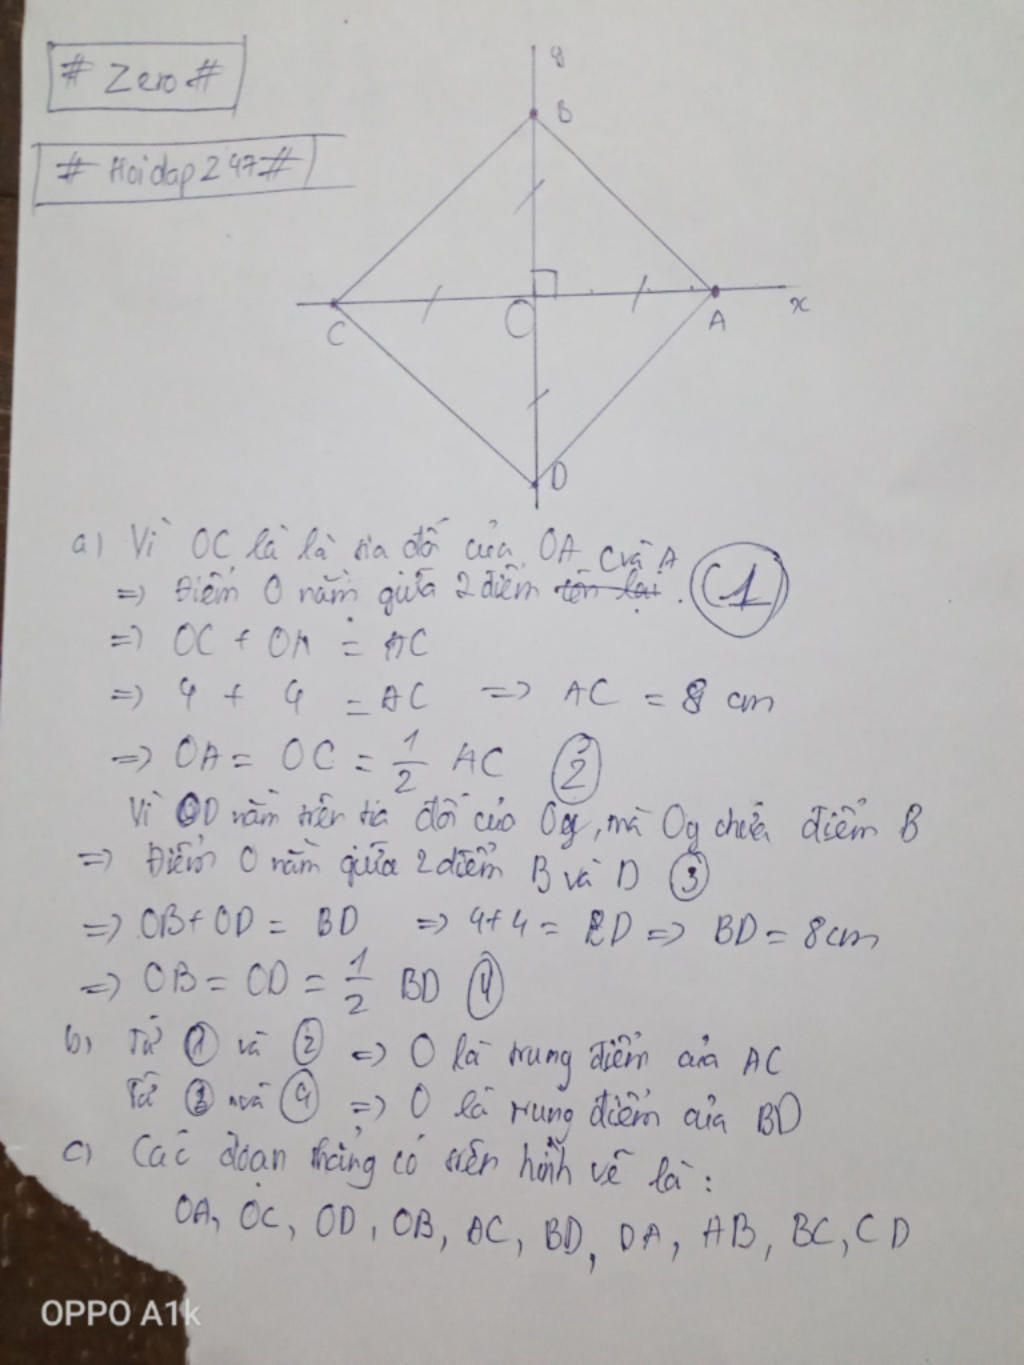 # Zero #
# Hoidap247 #
y
B
C
O
A
x
D
a) Vì OC là là tia đối của OA
C và A
=> Điểm O nằm giữa 2 điểm tồn lại. (1)
=> OC + OA = AC
=> 4 + 4 = AC => AC = 8 cm
=> OA = OC = 1/2 AC (2)
Vì OD nằm trên tia đối của Oy, mà Oy chứa điểm B
=> Điểm O nằm giữa 2 điểm B và D (3)
=> OB + OD = BD => 4+4 = BD => BD = 8cm
=> OB = OD = 1/2 BD (4)
b) Từ (1) và (2) => O là trung điểm của AC
Từ (3) và (4) => O là trung điểm của BD
c) Các đoạn thẳng có trên hình vẽ là:
OA, OC, OD, OB, AC, BD, DA, AB, BC, CD
OPPO A1k